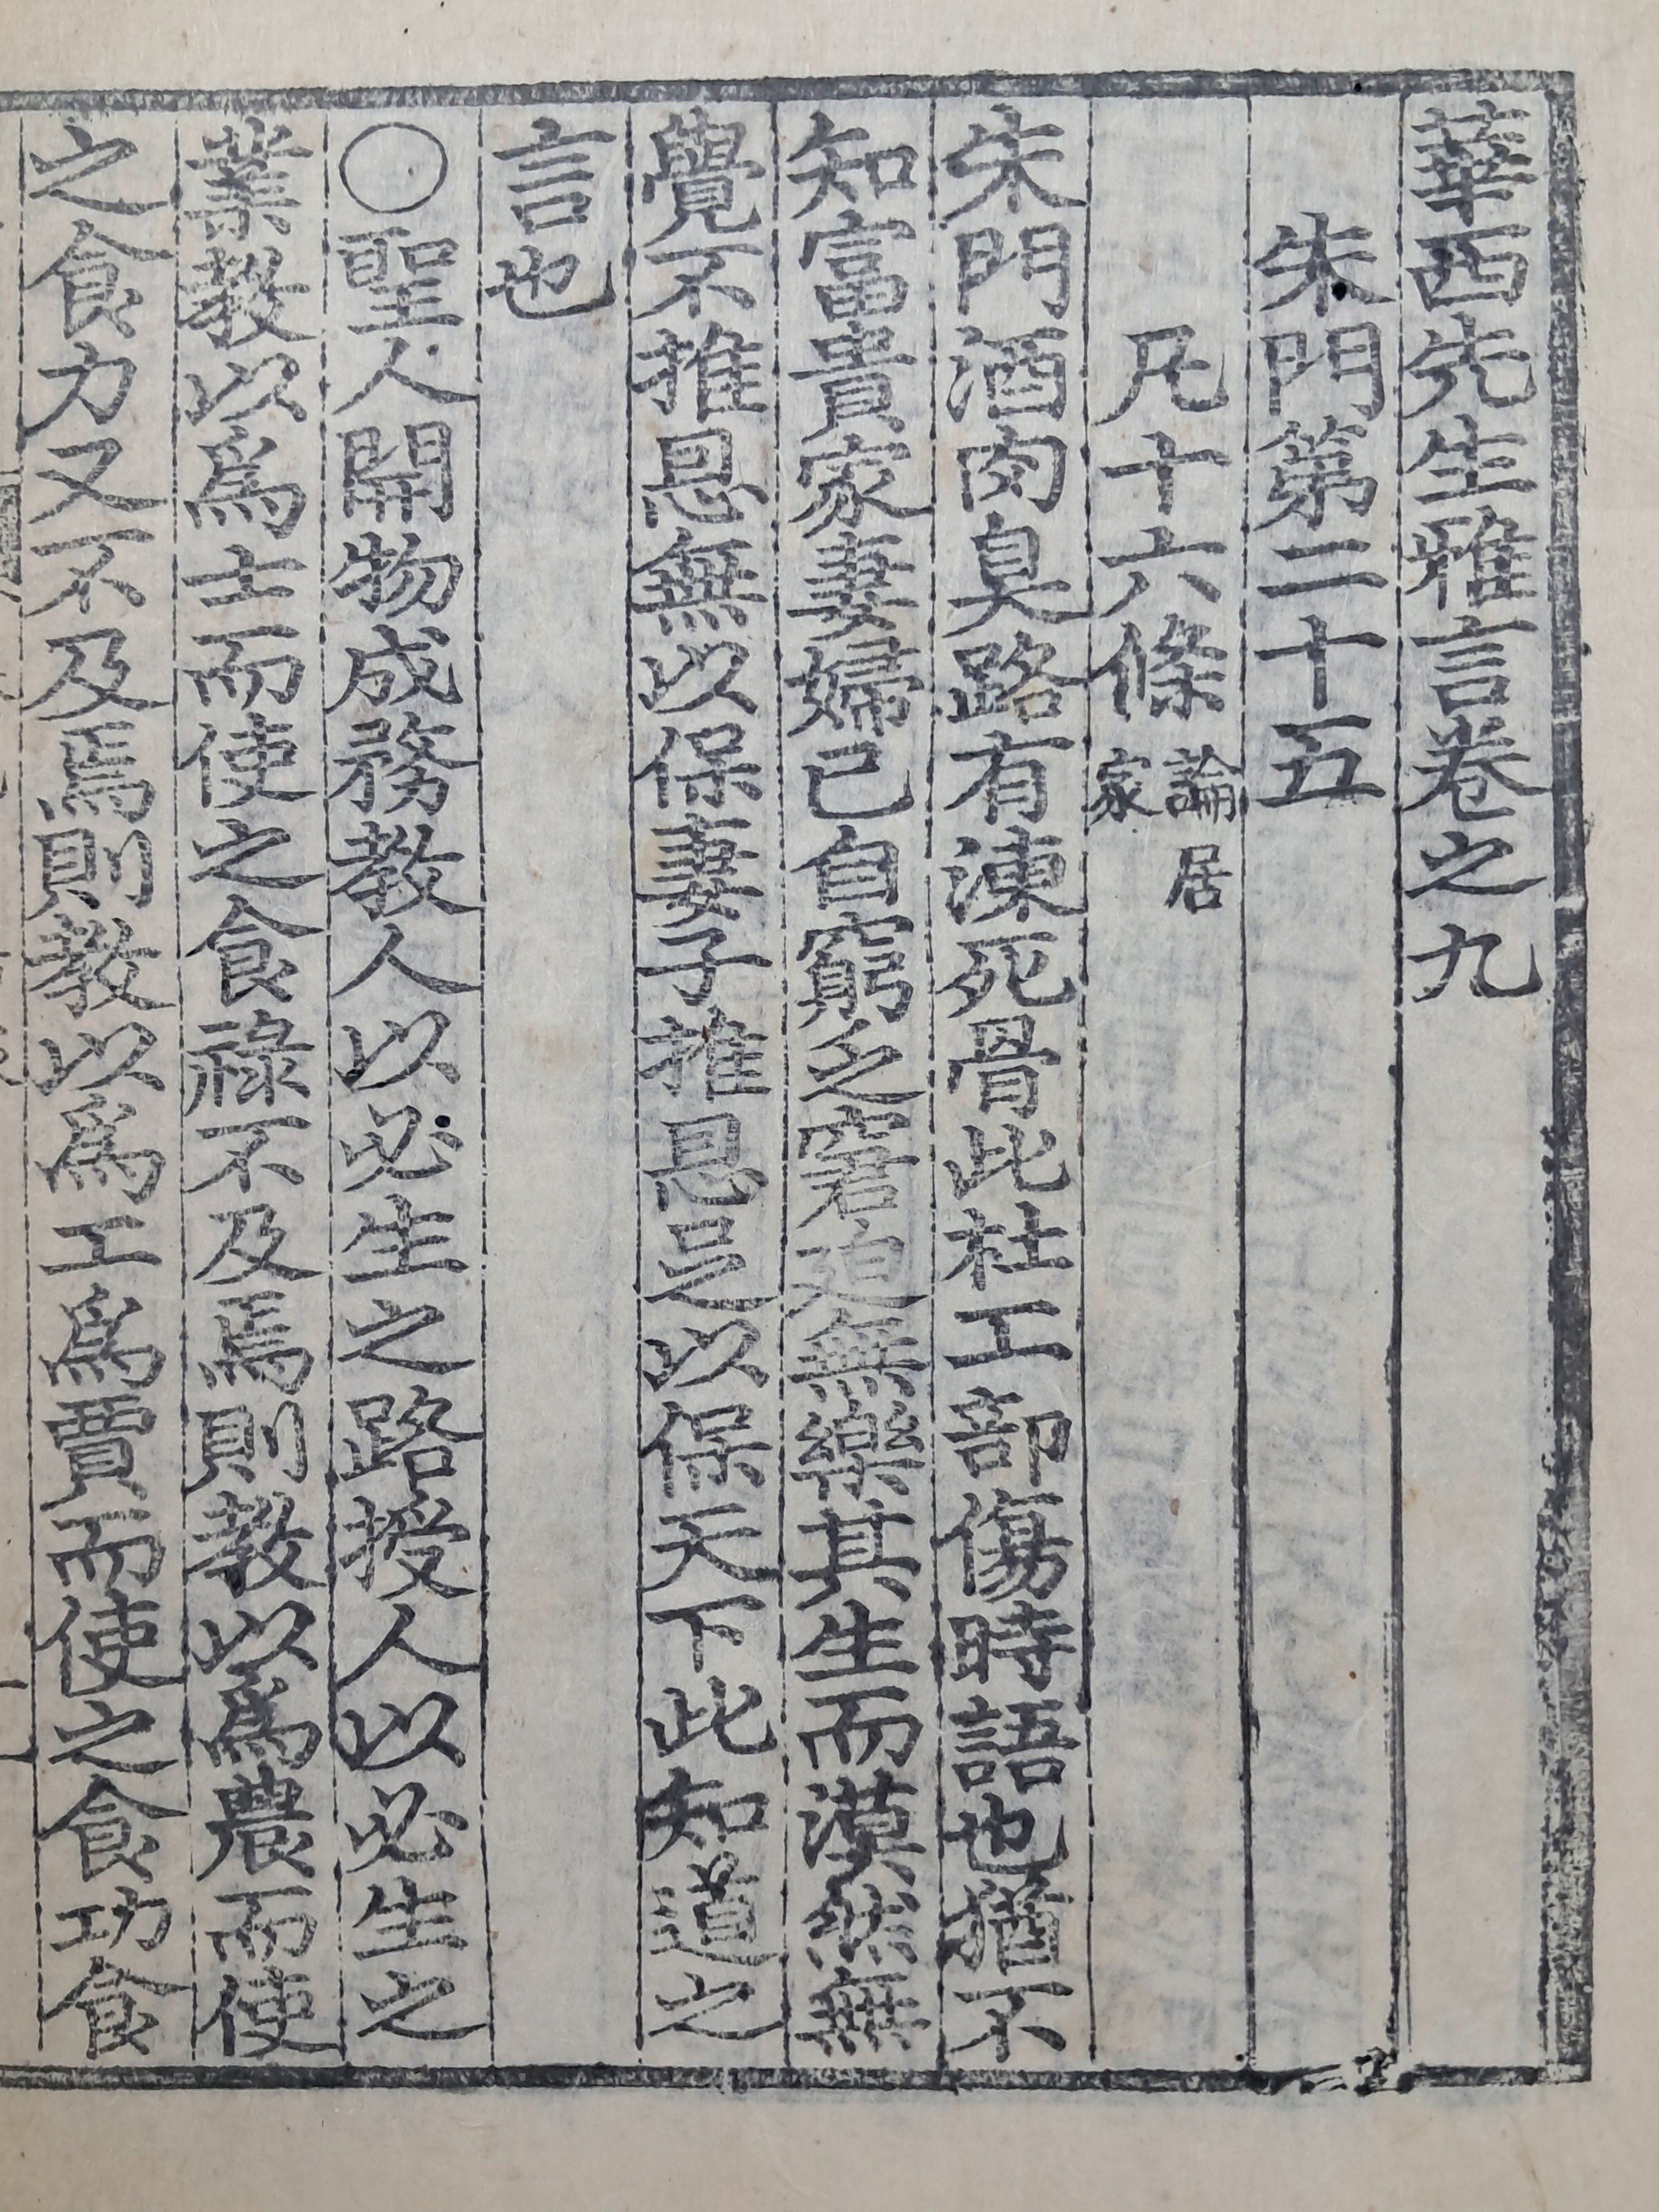 華西先生雅言卷之九
朱門第二十五
凡十六條 論居家
朱門酒肉臭路有凍死骨此杜工部傷時語也猶不
知富貴家妻婦已自窮之窘迫無樂其生而漠然無
覺不推恩無以保妻子推恩足以保天下此知道之
言也
○聖人開物成務教人以必生之路授人以必生之
業教以爲士而使之食祿不及焉則教以爲農而使
之食力又不及焉則教以爲工爲賈而使之食功食